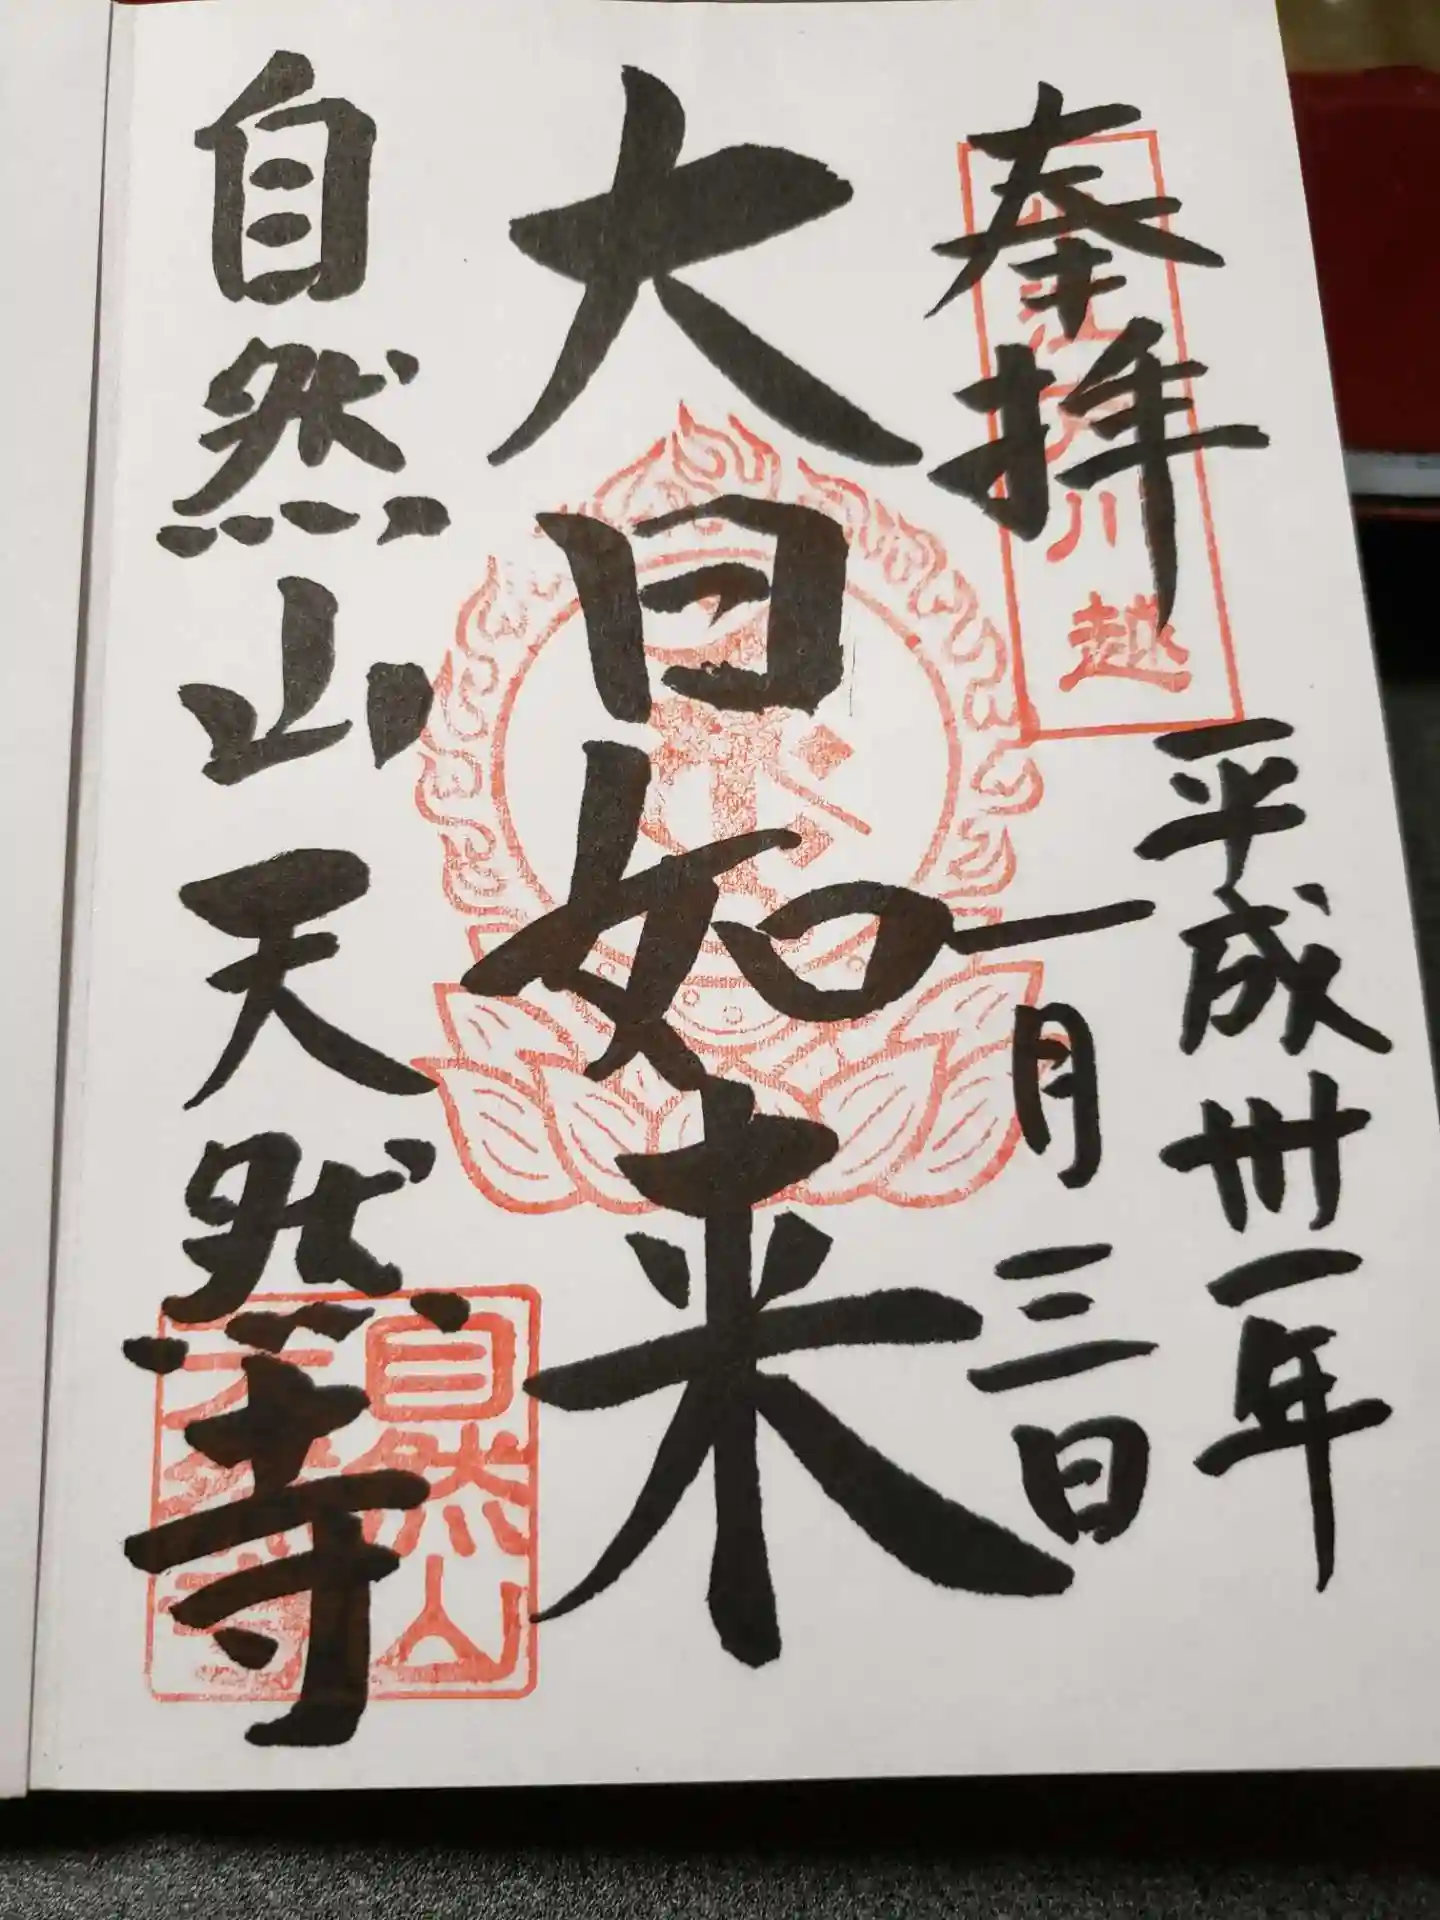 奉拝
川越
平成卅一年
一月三日
大日如来
自然山天然寺
自然山